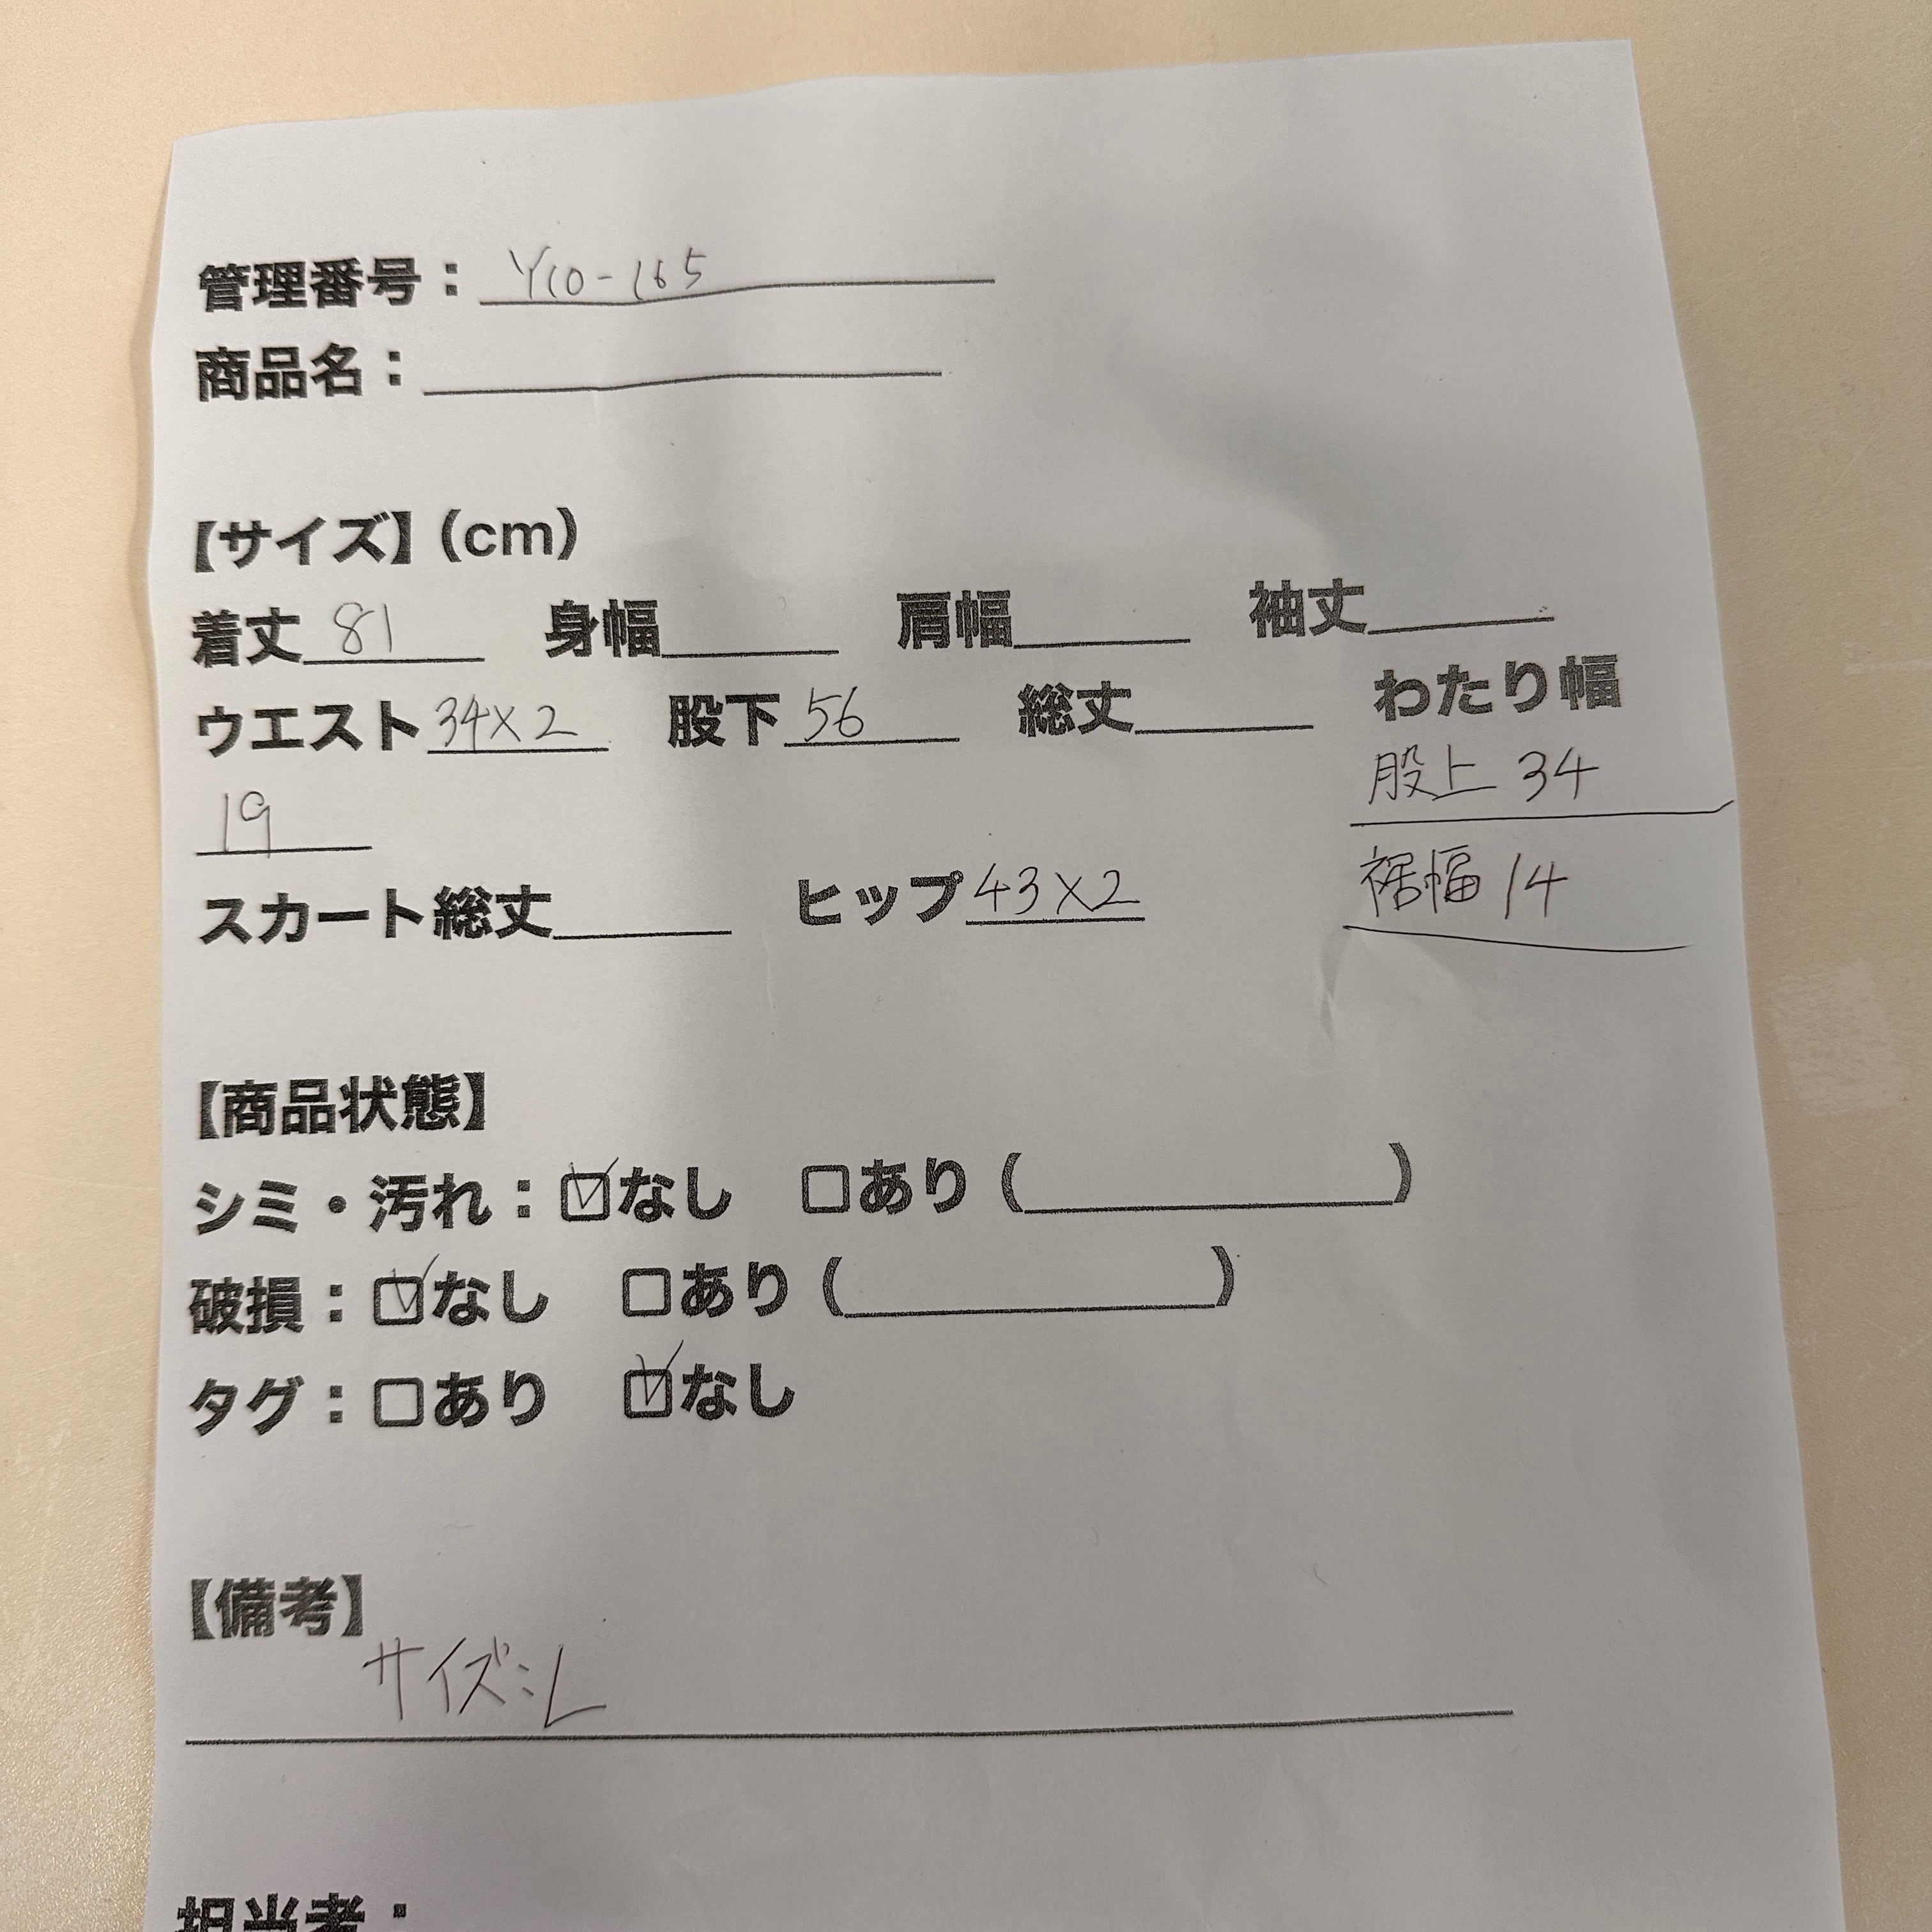 管理番号： Y10-165
商品名：
【サイズ】（cm）
着丈 81 身幅 肩幅 袖丈
ウエスト 34×2 股下 56 総丈 わたり幅
19
股上 34
スカート総丈 ヒップ 43×2
裾幅 14
【商品状態】
シミ・汚れ：☑なし □あり（ ）
破損：☑なし □あり（ ）
タグ：□あり ☑なし
【備考】
サイズ:L
担当者：